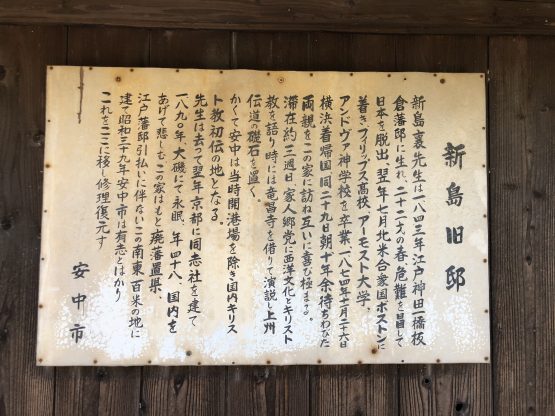 新島旧邸
新島襄先生は一八四三年江戸神田一橋板
倉藩邸に生れ、二十二才の春危難を冒して
日本を脱出翌年七月北米合衆国ボストンに
着きフィリップス高校、アーモスト大学、
アンドヴァ神学校を卒業、一八七四年十一月二十六日
横浜着帰国同二十九日朝十年余待ちわびた
両親をこの家に訪ね互いに喜び極まる。
滞在約三週日家人郷党に西洋文化とキリスト
教を語り時には竜昌寺を借りて演説し上州
伝道の礎石を置く。
かくて安中は当時開港場を除き国内キリス
ト教初伝の地となる。
先生は去って翌年京都に同志社を建て
一八九〇年大磯にて永眠、年四十八、国内を
あげて悲しむこの家はもと廃藩置県、
江戸藩邸引払いに伴ないこの南東百米の地に
建て昭和三九年安中市は有志とはかり
これをここに移し修理復元す
安中市